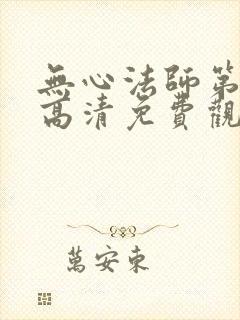 無心法師第
高清免費觀
萬安東